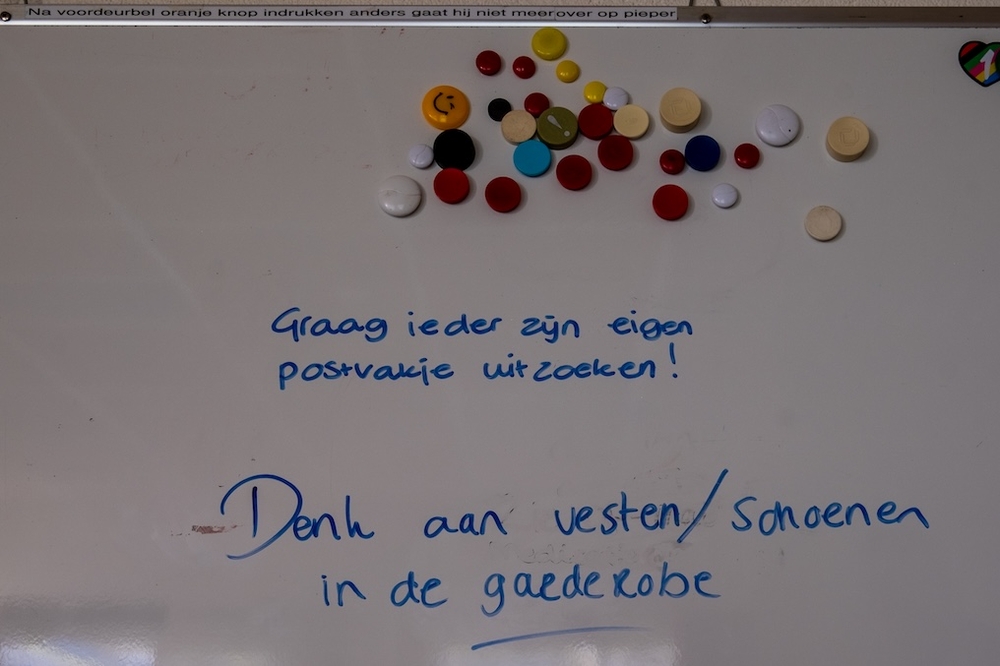 Na voordeurbel oranje knop indrukken anders gaat hij niet meer over op pieper
1
!
Graag ieder zijn eigen
postvakje uitzoeken!
Denk aan vesten/schoenen
in de gaederobe